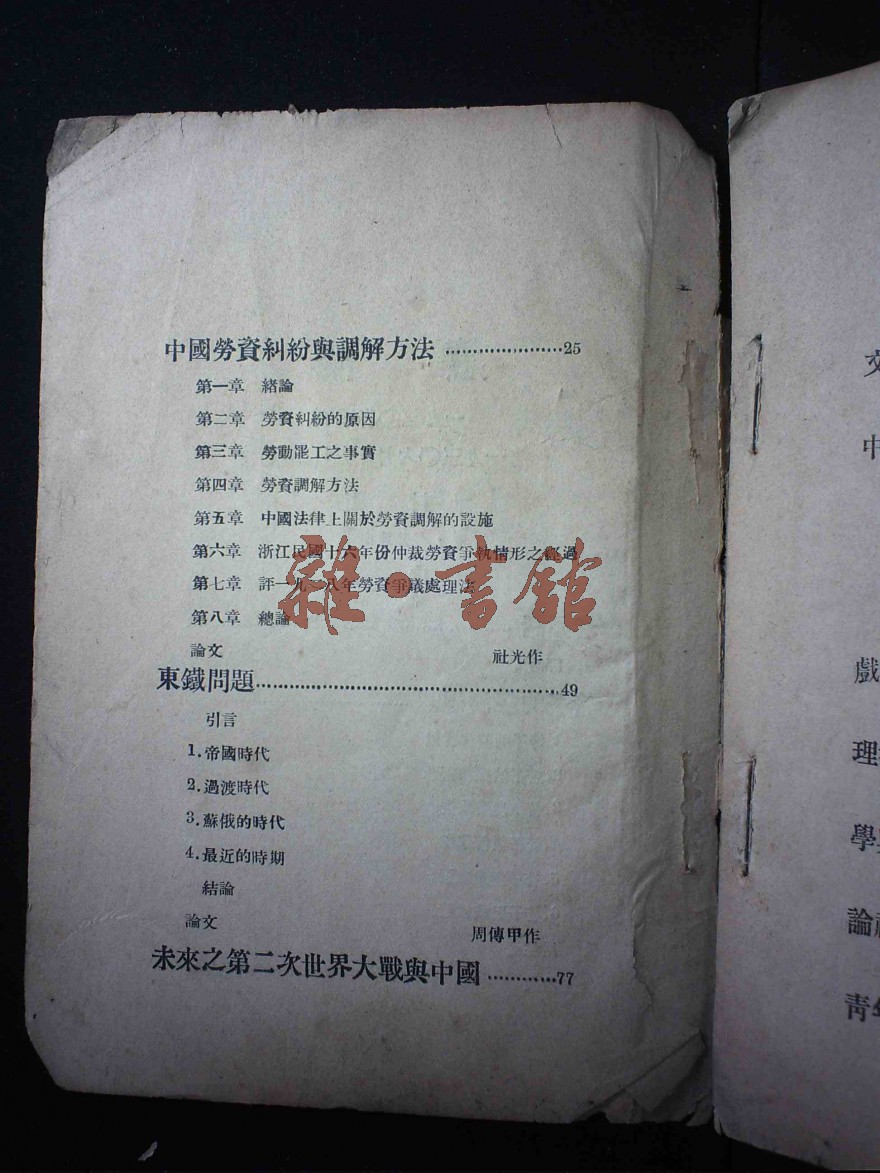 中國勞資糾紛與調解方法 …………………25
第一章 緒論
第二章 勞資糾紛的原因
第三章 勞動罷工之事實
第四章 勞資調解方法
第五章 中國法律上關於勞資調解的設施
第六章 浙江民國十六年份仲裁勞資爭執情形之經過
第七章 評一九二八年勞資爭議處理法
第八章 總論
論文 社光作
東鐵問題……………………………………………49
引言
1.帝國時代
2.過渡時代
3.蘇俄的時代
4.最近的時期
結論
論文 周傳甲作
未來之第二次世界大戰與中國 …………77
雜·書館
中
戲
理
學
論
青